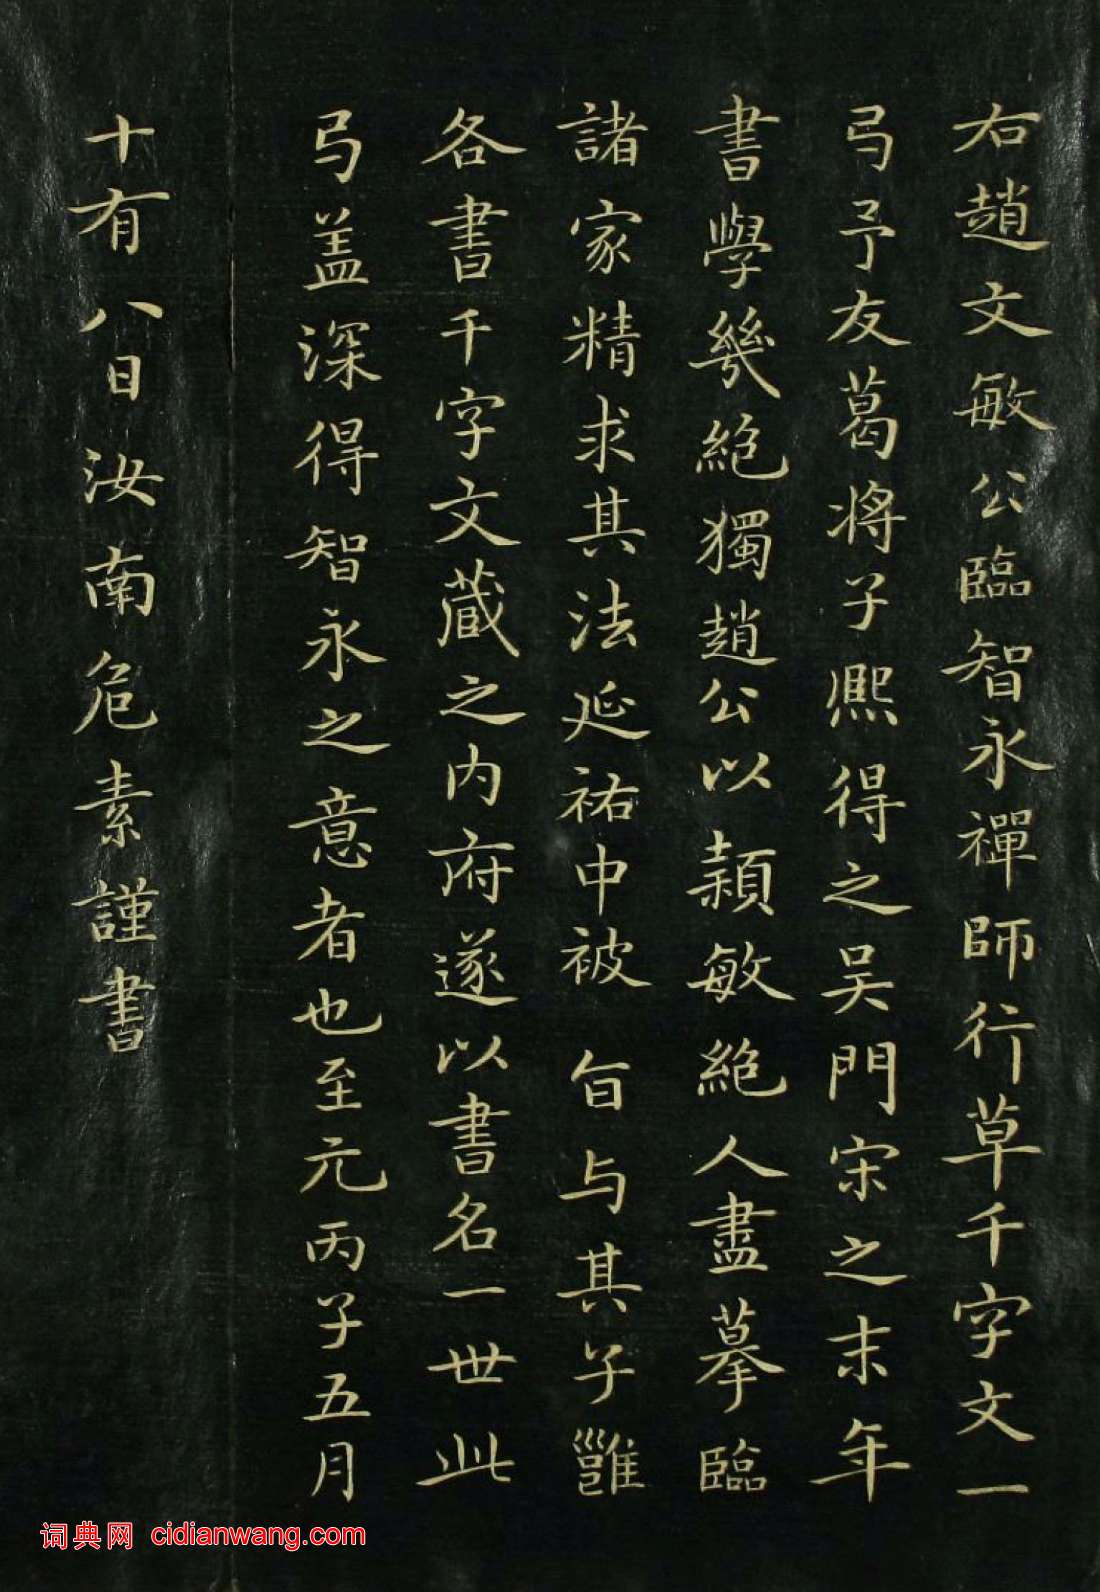 右趙文敏公臨智永禪師行草千字文一
弓予友葛將子熈得之吴門宋之末年
書學幾絶獨趙公以穎敏絶人盡摹臨
諸家精求其法延祐中被 旨与其子雝
各書千字文蔵之内府遂以書名一世此
弓盖深得智永之意者也至元丙子五月
十有八日汝南危素謹書
词典网 cidianwang.com